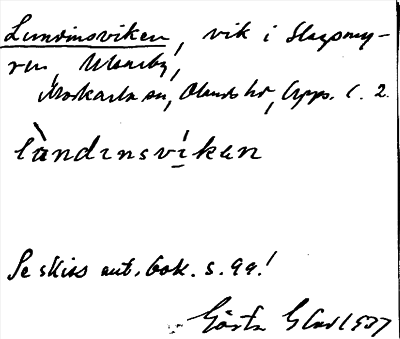 Lundinsviken, vik i Slagsmy-
ren
Morkarla sn, Olands hd, Upps. l. 2.
làndɪnsvíkan
Se skiss ant. bok. s. 99!
Gösta 1937